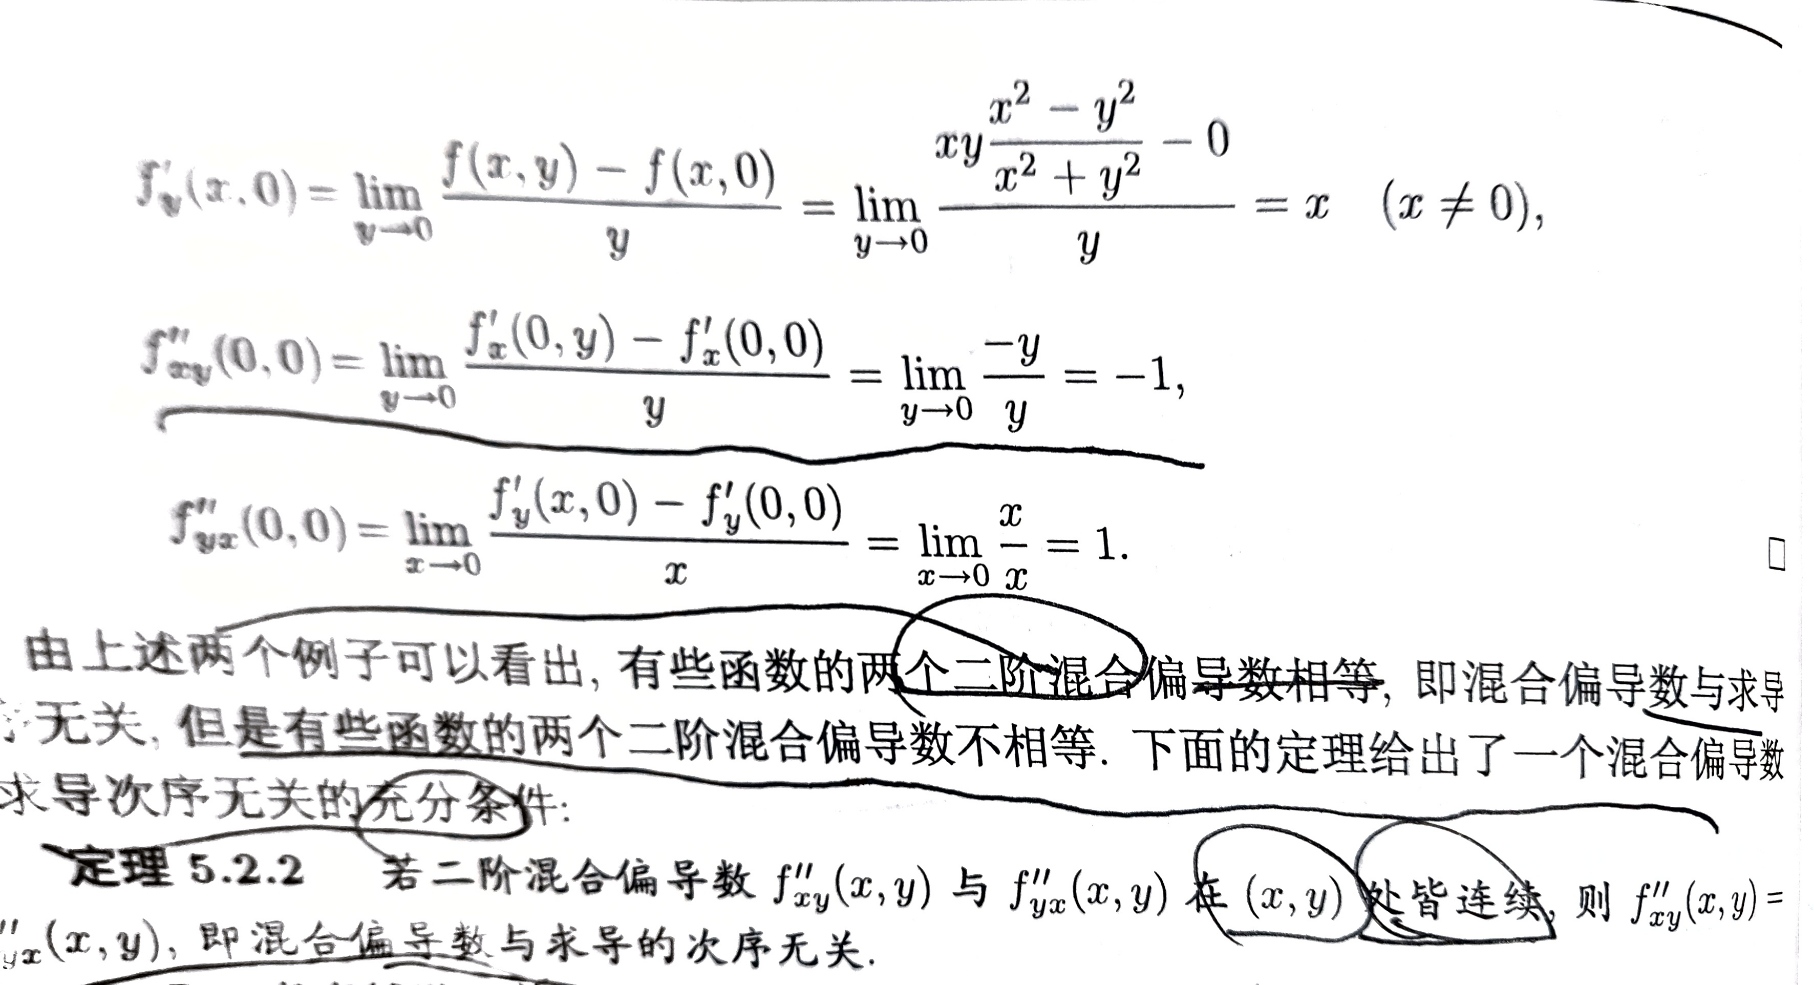 f′_y(x,0) = lim_{y→0} (f(x,y) − f(x,0))/y = lim_{y→0} (xy (x² − y²)/(x² + y²) − 0)/y = x (x ≠ 0),
f″_{xy}(0,0) = lim_{y→0} (f′_x(0,y) − f′_x(0,0))/y = lim_{y→0} −y/y = −1,
f″_{yx}(0,0) = lim_{x→0} (f′_y(x,0) − f′_y(0,0))/x = lim_{x→0} x/x = 1. □
由上述两个例子可以看出, 有些函数的两个二阶混合偏导数相等, 即混合偏导数与求导
无关, 但是有些函数的两个二阶混合偏导数不相等. 下面的定理给出了一个混合偏导数
求导次序无关的充分条件:
定理 5.2.2 若二阶混合偏导数 f″_{xy}(x,y) 与 f″_{yx}(x,y) 在 (x,y) 处皆连续, 则 f″_{xy}(x,y) =
″_{yx}(x,y), 即混合偏导数与求导的次序无关.